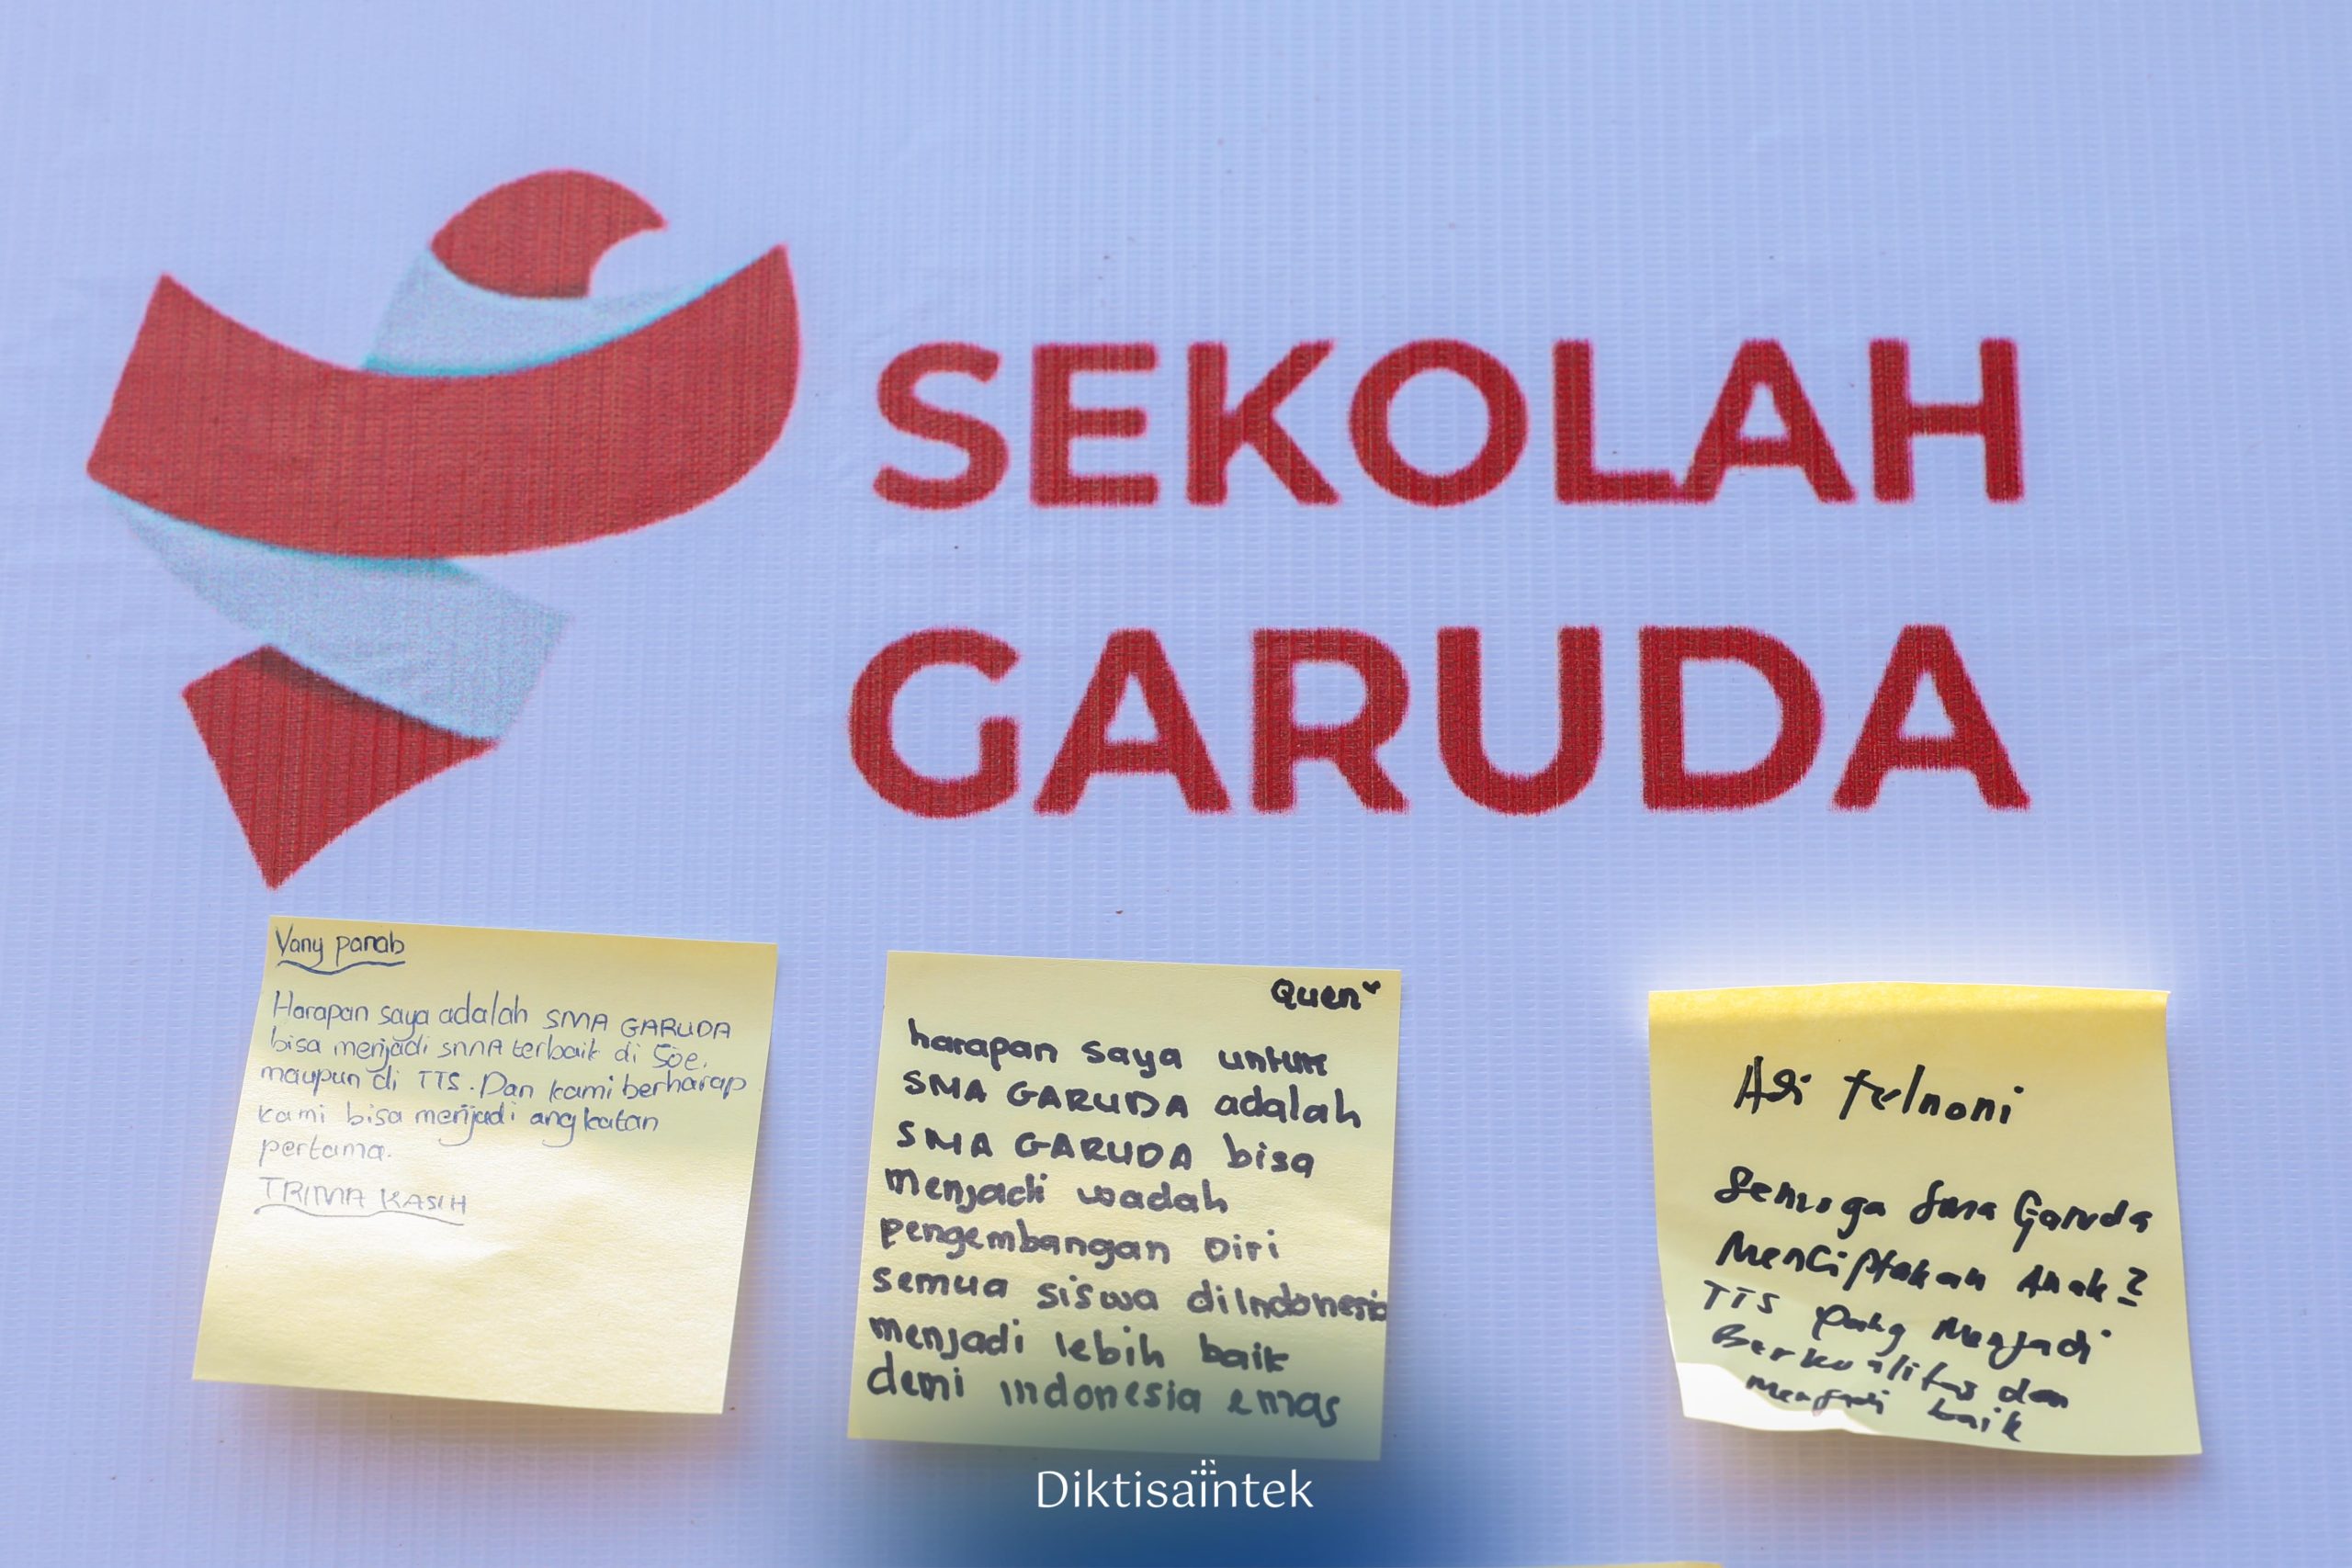 SEKOLAH
GARUDA
Vany panab
Harapan saya adalah SMA GARUDA
bisa menjadi SMA terbaik di Soe,
maupun di TTS. Dan kami berharap
kami bisa menjadi angkatan
pertama.
TRIMA KASIH
Quen
harapan saya untuk
SMA GARUDA adalah
SMA GARUDA bisa
menjadi wadah
pengembangan Diri
semua siswa diIndonesia
menjadi lebih baik
demi indonesia emas
Adi
Semoga Sma Garuda
Menciptakan Anak2
TTS yang Menjadi
Berkualitas dan
Menjadi baik
Diktisaintek